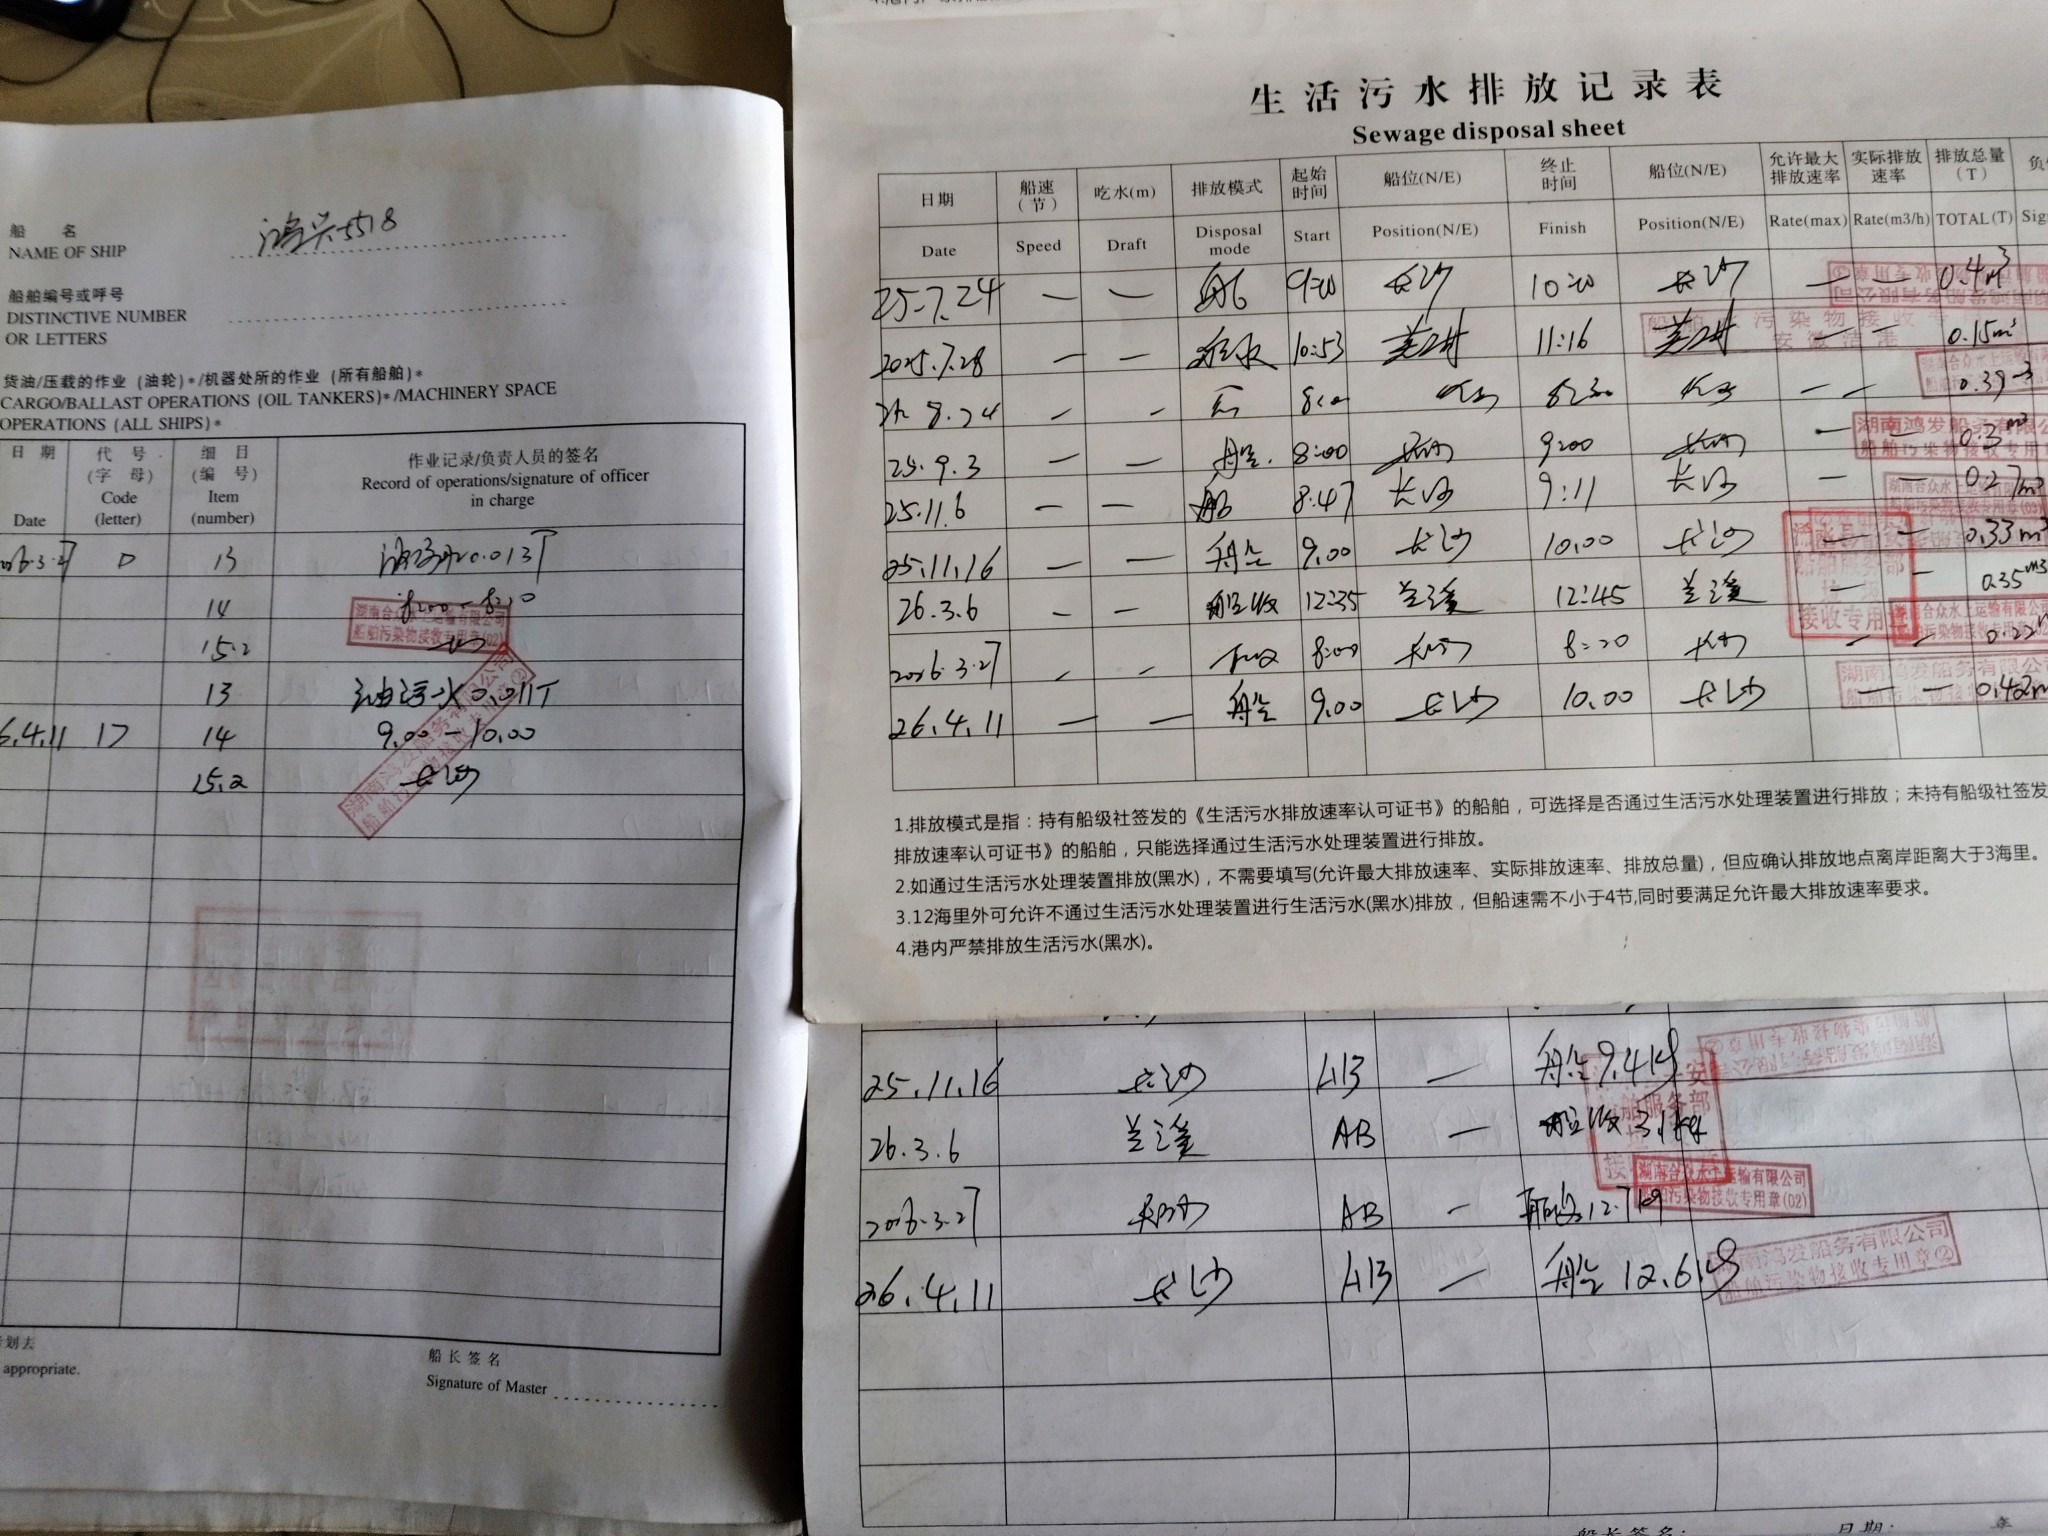 船 名
NAME OF SHIP
5518
船舶编号或呼号
DISTINCTIVE NUMBER
OR LETTERS
货油/压载的作业（油轮）*/机器处所的作业（所有船舶）*
CARGO/BALLAST OPERATIONS (OIL TANKERS)*/MACHINERY SPACE
OPERATIONS (ALL SHIPS)*
日期 代号 细目 作业记录/负责人员的签名
(字母) (编号) Record of operations/signature of officer
Code Item in charge
Date (letter) (number)
2026.3.27 D 13 油污水0.013T
14 8:00-8:10
湖南合众水上运输有限公司
船舶污染物接收专用章(02)
15.2
13 油污水0.011T
6.4.11 D 14 9.00-10.00
15.2 长沙
湖南鸿发船务有限公司
船舶污染物接收专用章②
划去
appropriate.
船长签名
Signature of Master
生活污水排放记录表
Sewage disposal sheet
日期 船速(节) 吃水(m) 排放模式 起始时间 船位(N/E) 终止时间 船位(N/E) 允许最大排放速率 实际排放速率 排放总量(T)
Date Speed Draft Disposal mode Start Position(N/E) Finish Position(N/E) Rate(max) Rate(m3/h) TOTAL(T)
25.7.24 — — 9:00 长沙 10:00 长沙 — — 0.4m³
2025.7.28 — — 10:53 11:16 — — 0.15m³
8.24 — — — — 0.39m³
25.9.3 — — 船 8:00 长沙 9:00 长沙 — — 0.3m³
25.11.6 — — 船 8:47 长沙 9:11 长沙 — — 0.27m³
25.11.16 — — 船 9.00 长沙 10.00 长沙 — — 0.33m³
26.3.6 — — 船收 12:35 兰溪 12:45 兰溪 — — 0.35m3
2026.3.27 — — 8:00 长沙 8:20 长沙 — —
26.4.11 — — 船 9.00 长沙 10.00 长沙 — — 0.42m
湖南鸿发船务有限公
船舶污染物接收专用章
接收专用章
1.排放模式是指：持有船级社签发的《生活污水排放速率认可证书》的船舶，可选择是否通过生活污水处理装置进行排放；未持有船级社签发
排放速率认可证书》的船舶，只能选择通过生活污水处理装置进行排放。
2.如通过生活污水处理装置排放(黑水)，不需要填写(允许最大排放速率、实际排放速率、排放总量)，但应确认排放地点离岸距离大于3海里。
3.12海里外可允许不通过生活污水处理装置进行生活污水(黑水)排放，但船速需不小于4节,同时要满足允许最大排放速率要求。
4.港内严禁排放生活污水(黑水)。
25.11.16 长沙 AB — 船 9.4kg
26.3.6 兰溪 AB — 船收 3.1kg
2026.3.27 长沙 AB — 12.7kg
26.4.11 长沙 AB — 船 12.6kg
船舶服务部
湖南合众水上运输有限公司
船舶污染物接收专用章(02)
湖南鸿发船务有限公司
船舶污染物接收专用章②
船长签名: 日期: 年